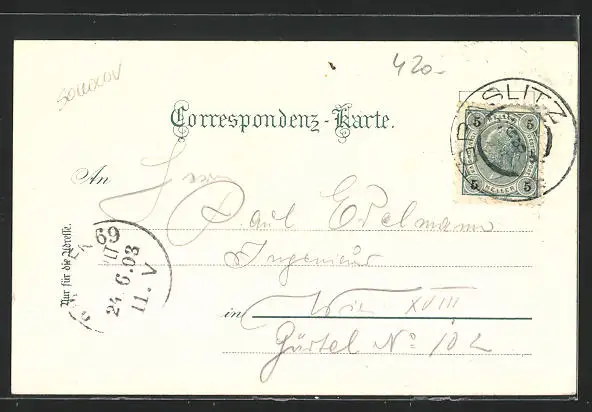 420-
SOKOLOV
Correspondenz-Karte.
5 5
5 HELLER 5
An Herrn
Paul Edelmann
Ingenieur
in Wien XVIII
Gürtel No 102
Nur für die Adresse.
69
24.6.03
11.V